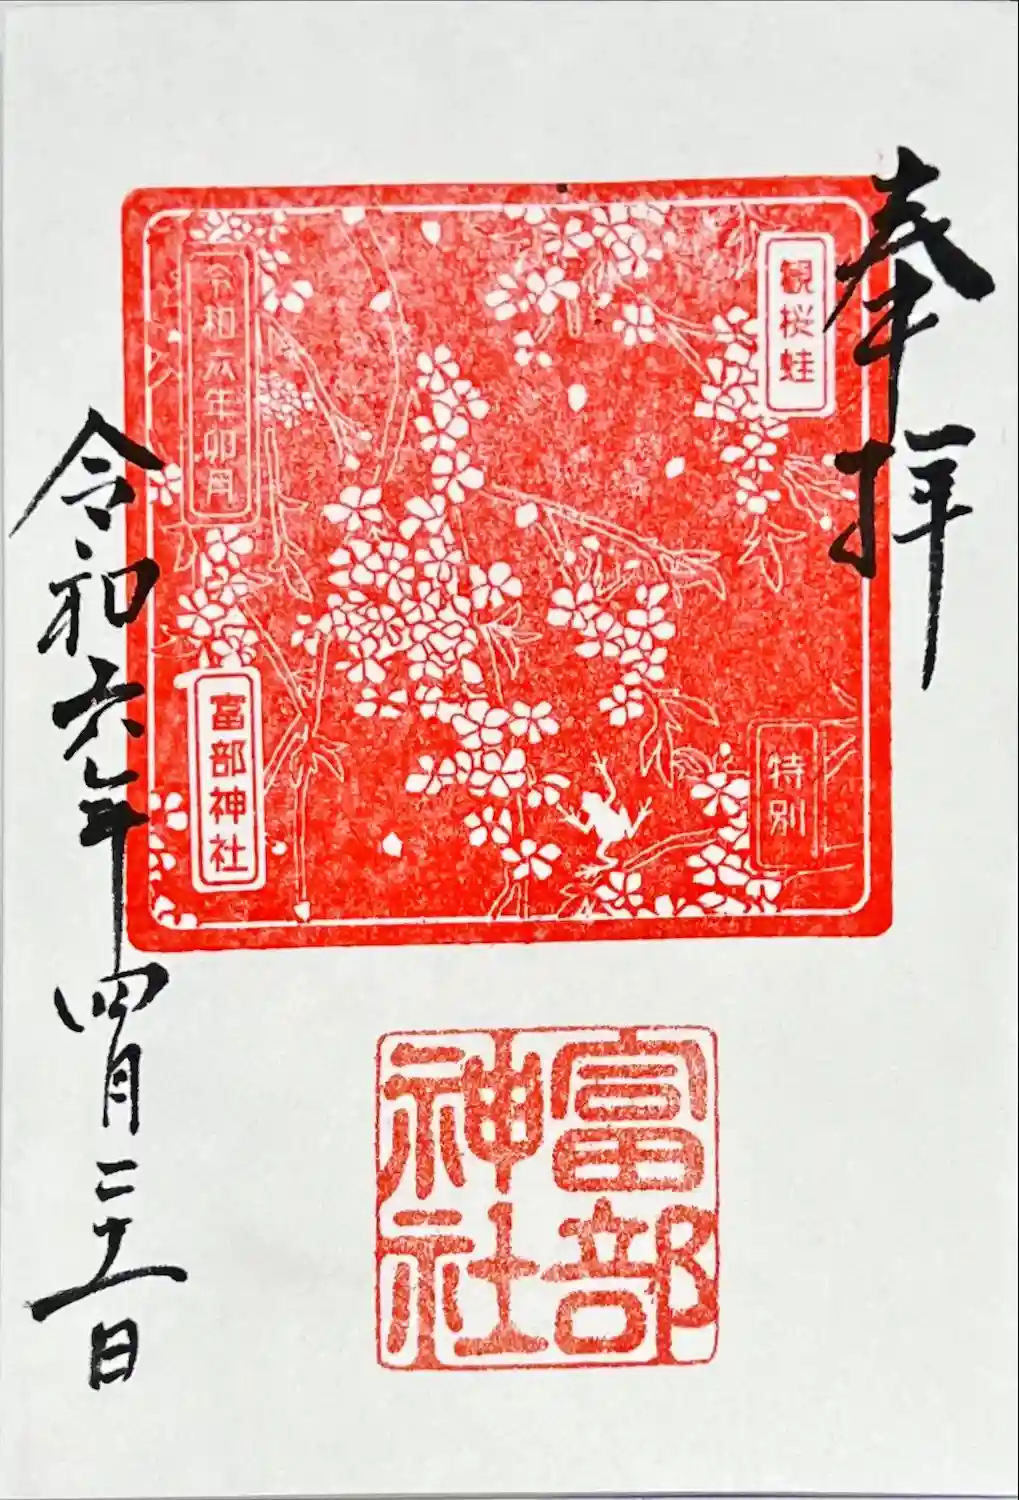 奉拝
観桜蛙
特別
令和六年卯月
富部神社
富部神社
令和六年四月二十一日